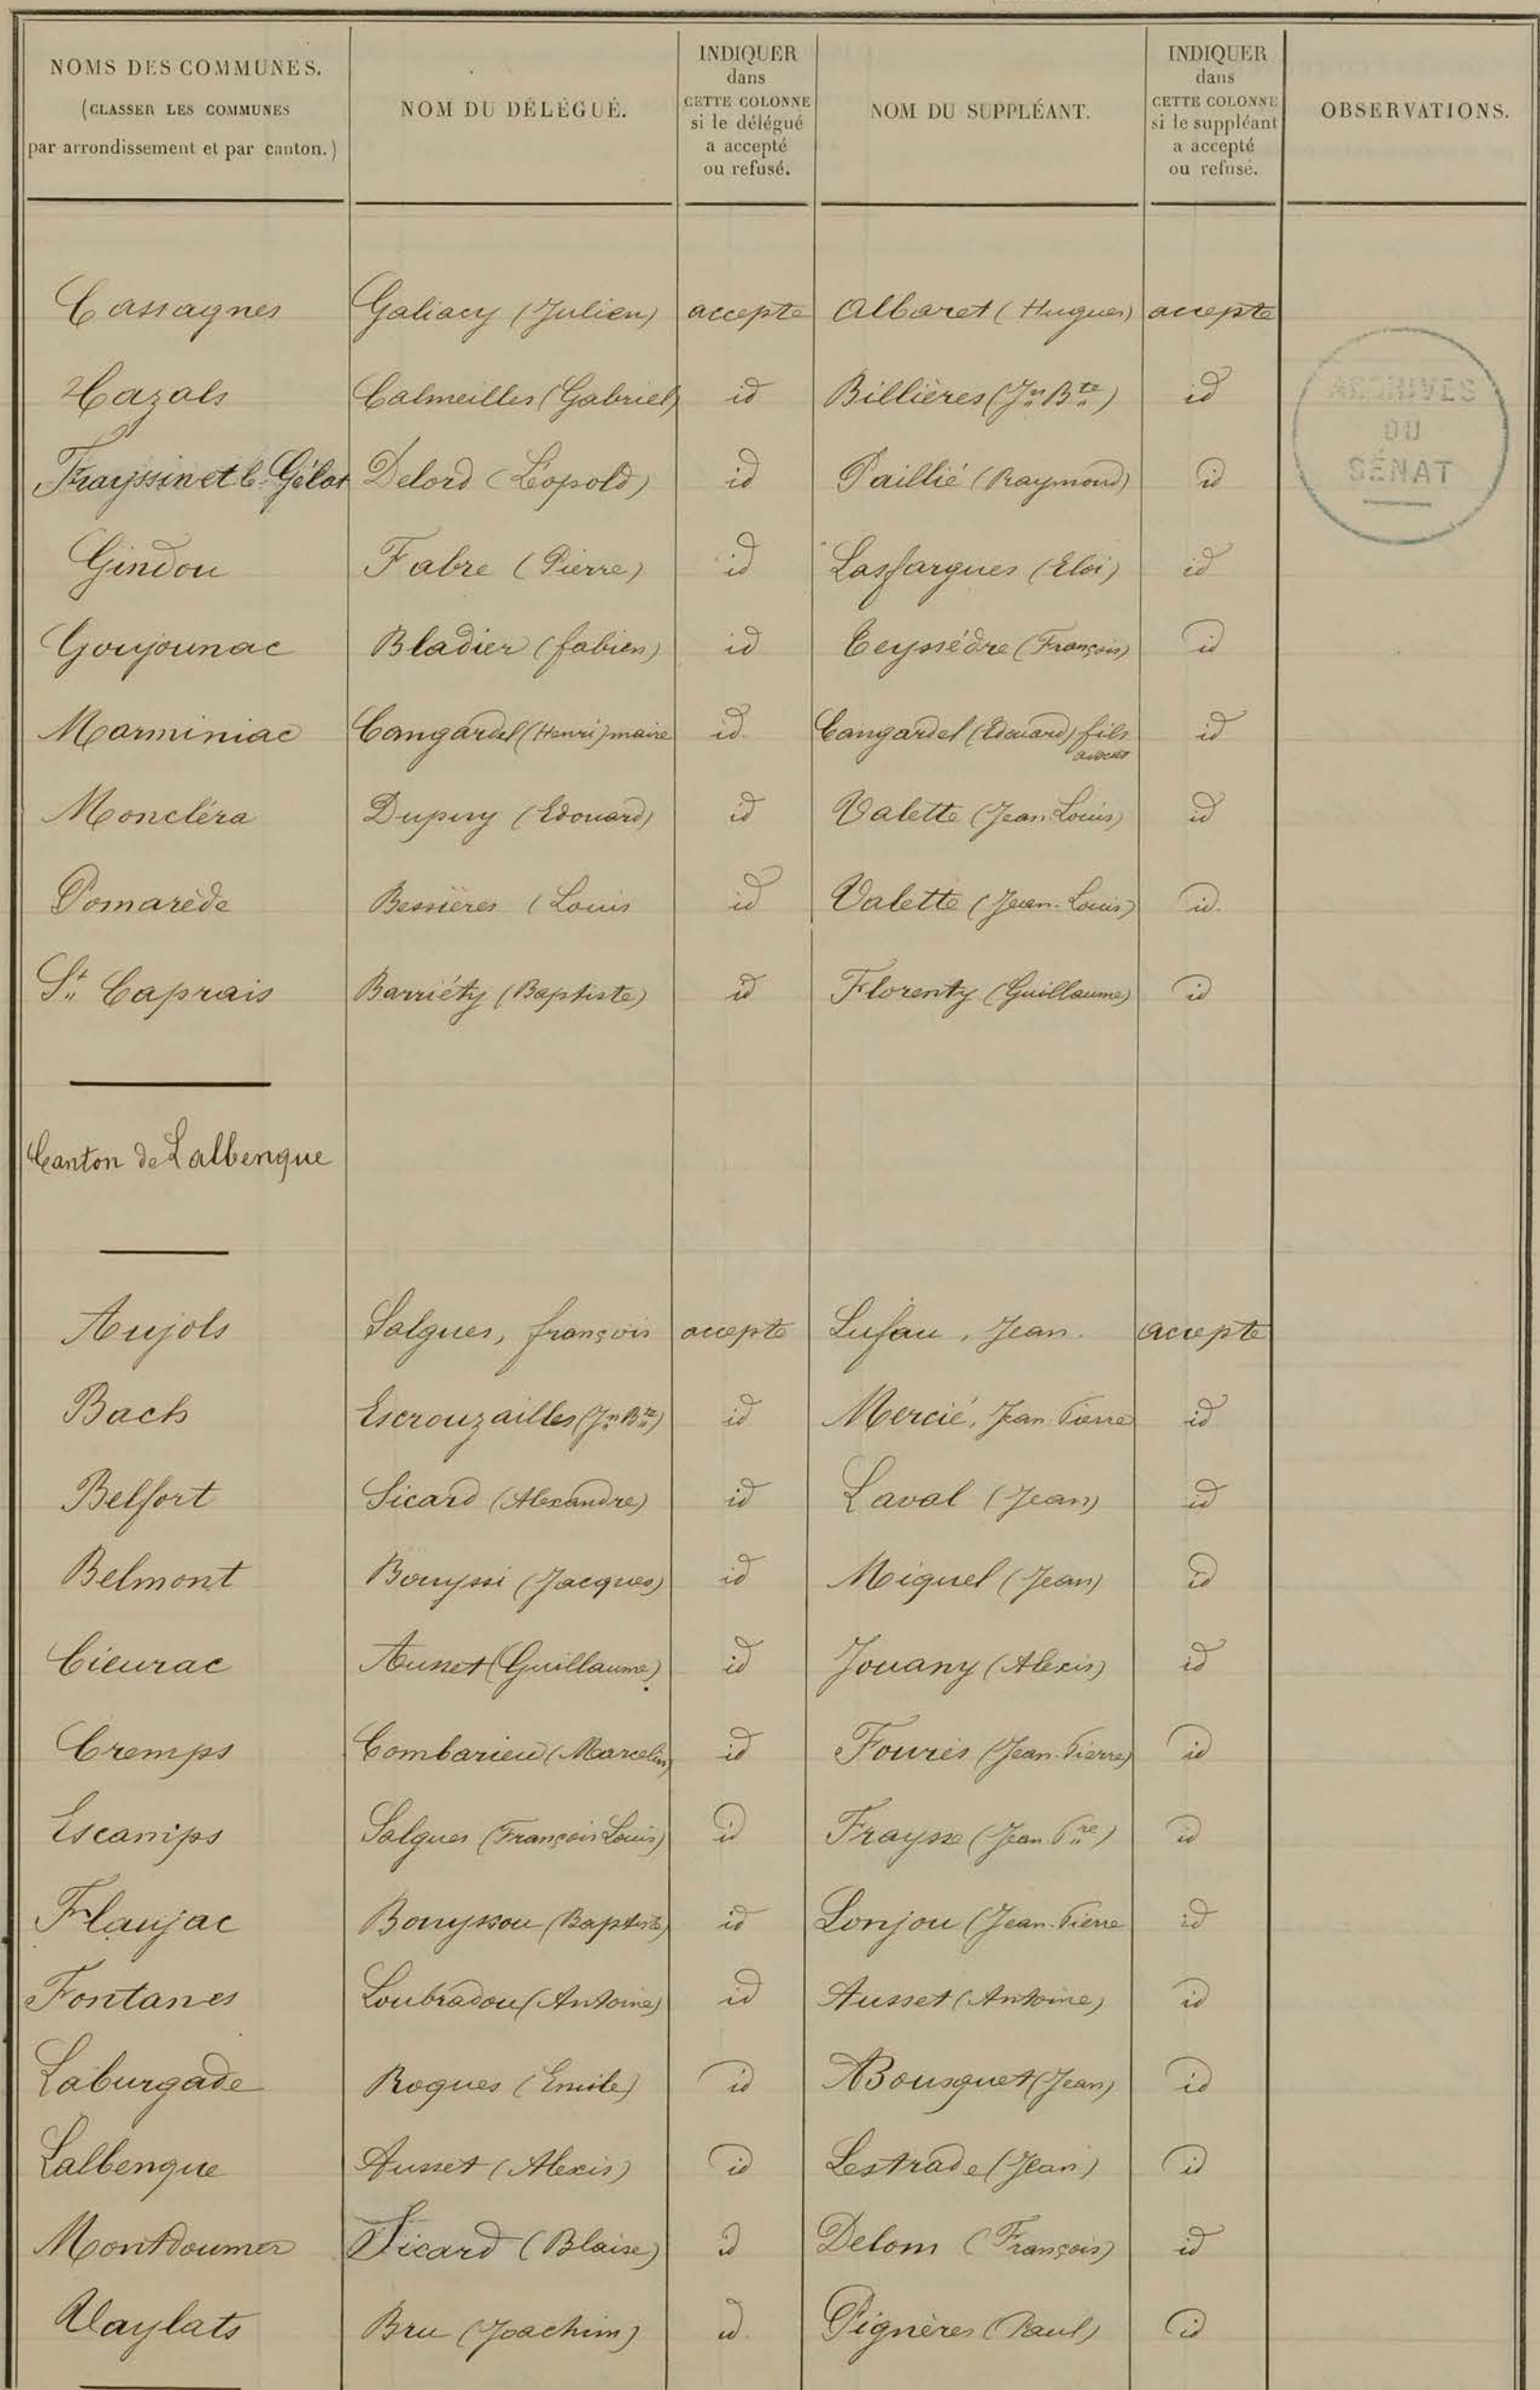 NOMS DES COMMUNES.
(CLASSER LES COMMUNES
par arrondissement et par canton.)
NOM DU DÉLÉGUÉ.
INDIQUER
dans
CETTE COLONNE
si le délégué
a accepté
ou refusé.
NOM DU SUPPLÉANT.
INDIQUER
dans
CETTE COLONNE
si le suppléant
a accepté
ou refusé.
OBSERVATIONS.
Cassagnes Galiacy (Julien) accepte Albaret (Hugues) accepte
Cazals Calmeilles (Gabriel) id Billières (Jn Bte) id
Frayssinet le Gélat Delord (Léopold) id Paillié (Raymond) id
Gindou Fabre (Pierre) id Lasfargues (Eloi) id
Goujounac Bladier (fabien) id Teyssèdre (François) id
Marminiac Cangardel (Henri) maire id Cangardel (Edouard) fils id
avocat
Moncléra Dupuy (Edouard) id Valette (Jean Louis) id
Pomarède Bessières (Louis id Valette (Jean-Louis) id
St Caprais Barriéty (Baptiste) id Florenty (Guillaume) id
ARCHIVES
DU
SÉNAT
Canton de Lalbenque
Aujols Salgues, françois accepte Lufau, Jean. accepte
Bach Escrouzailles (Jn Bte) id Mercié, Jean Pierre id
Belfort Sicard (Alexandre) id Laval (Jean) id
Belmont Bouyssi (Jacques) id Miquel (Jean) id
Cieurac Ausset (Guillaume) id Jouany (Alexis) id
Cremps Combarieu (Marcelin) id Fouriés (Jean-Pierre) id
Escamps Salgues (François Louis) id Fraysse (Jean Pre) id
Flaujac Bouyssou (Baptiste) id Lonjou (Jean-Pierre id
Fontanes Loubradou (Antoine) id Ausset (Antoine) id
Laburgade Rogues (Emile) id Bousquet (Jean) id
Lalbenque Ausset (Alexis) id Lestrade (Jean) id
Montdoumer Sicard (Blaise) id Delom (François) id
Vaylats Bru (Joachim) id Pignères (Paul) id